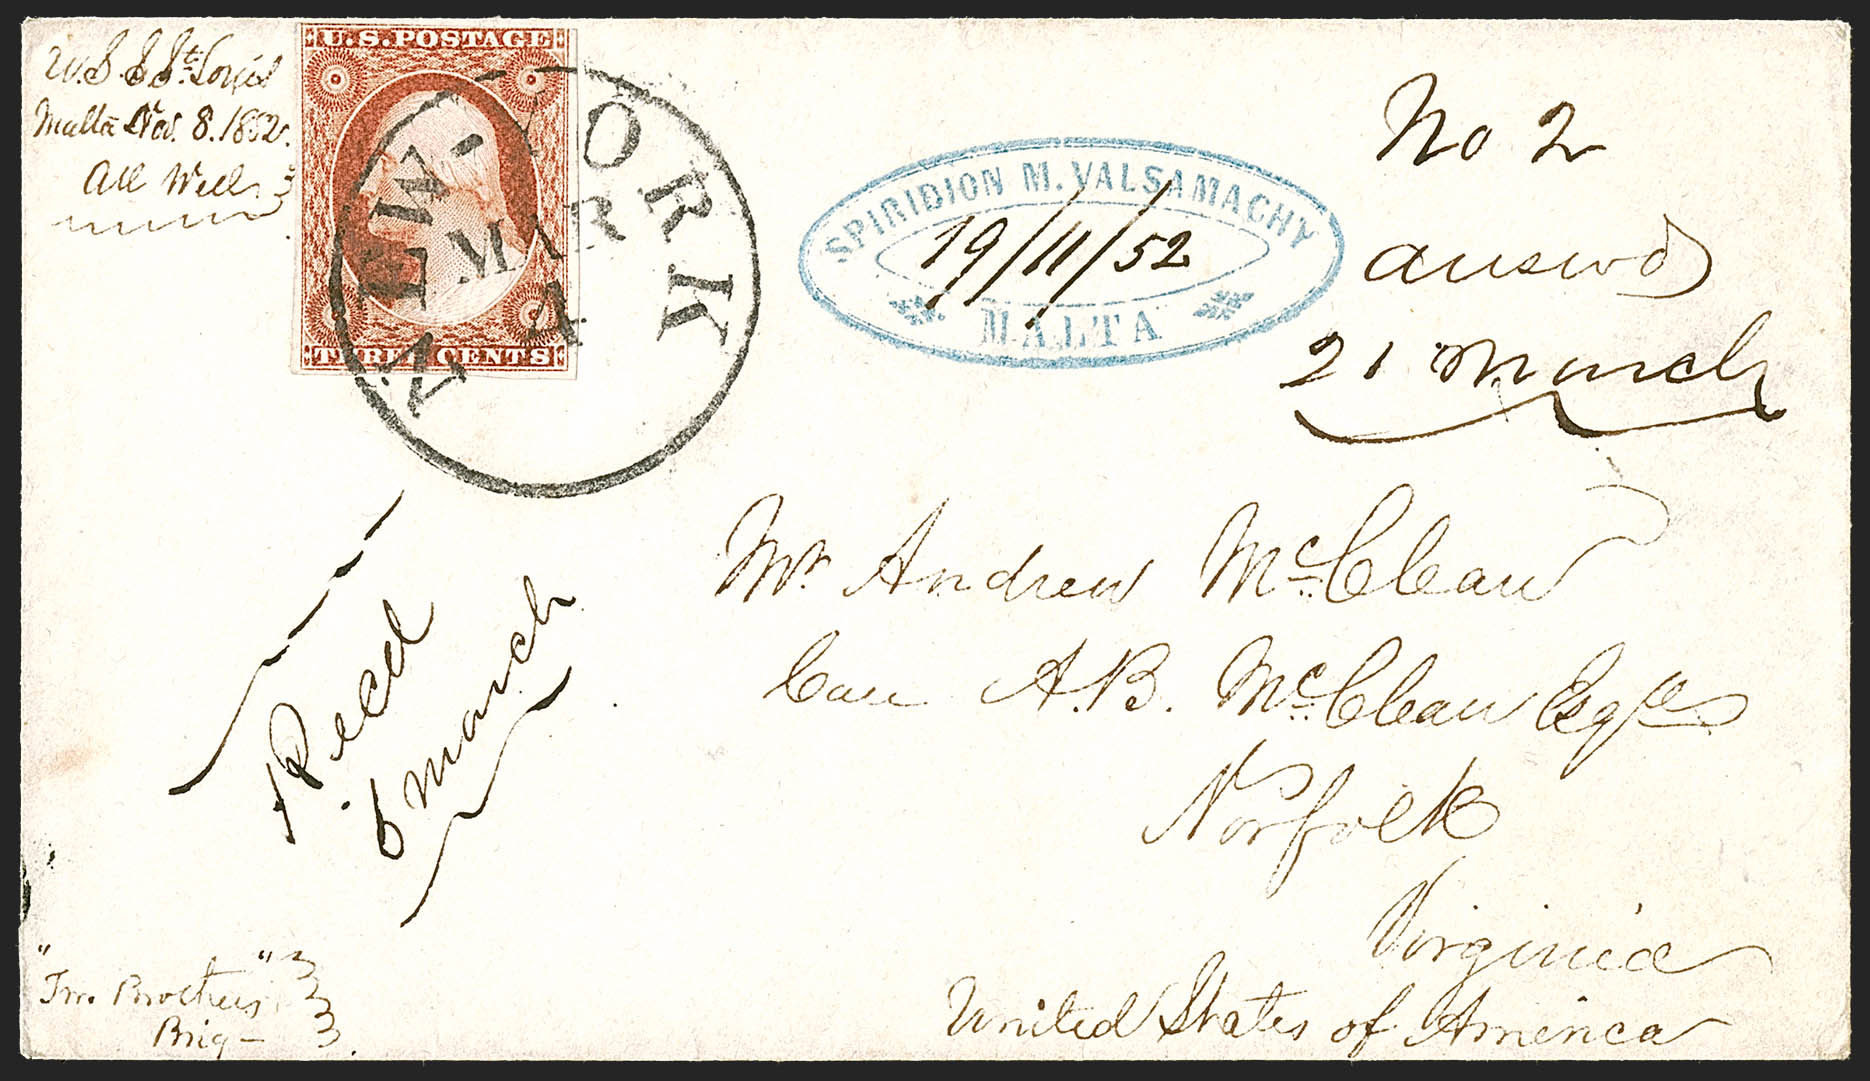 U.S. POSTAGE
THREE CENTS
NEW-YORK
MAR
4
U.S.S St. Louis
Malta Nov. 8. 1852.
All Well
SPIRIDION M. VALSAMACHY
19/11/52
MALTA
No 2
answd
21 March
Recd
6 March
Mr. Andrew McClean
Care A.B. McClean Esqre
Norfolk
Virginia
United States of America
"
Brothers"
Brig